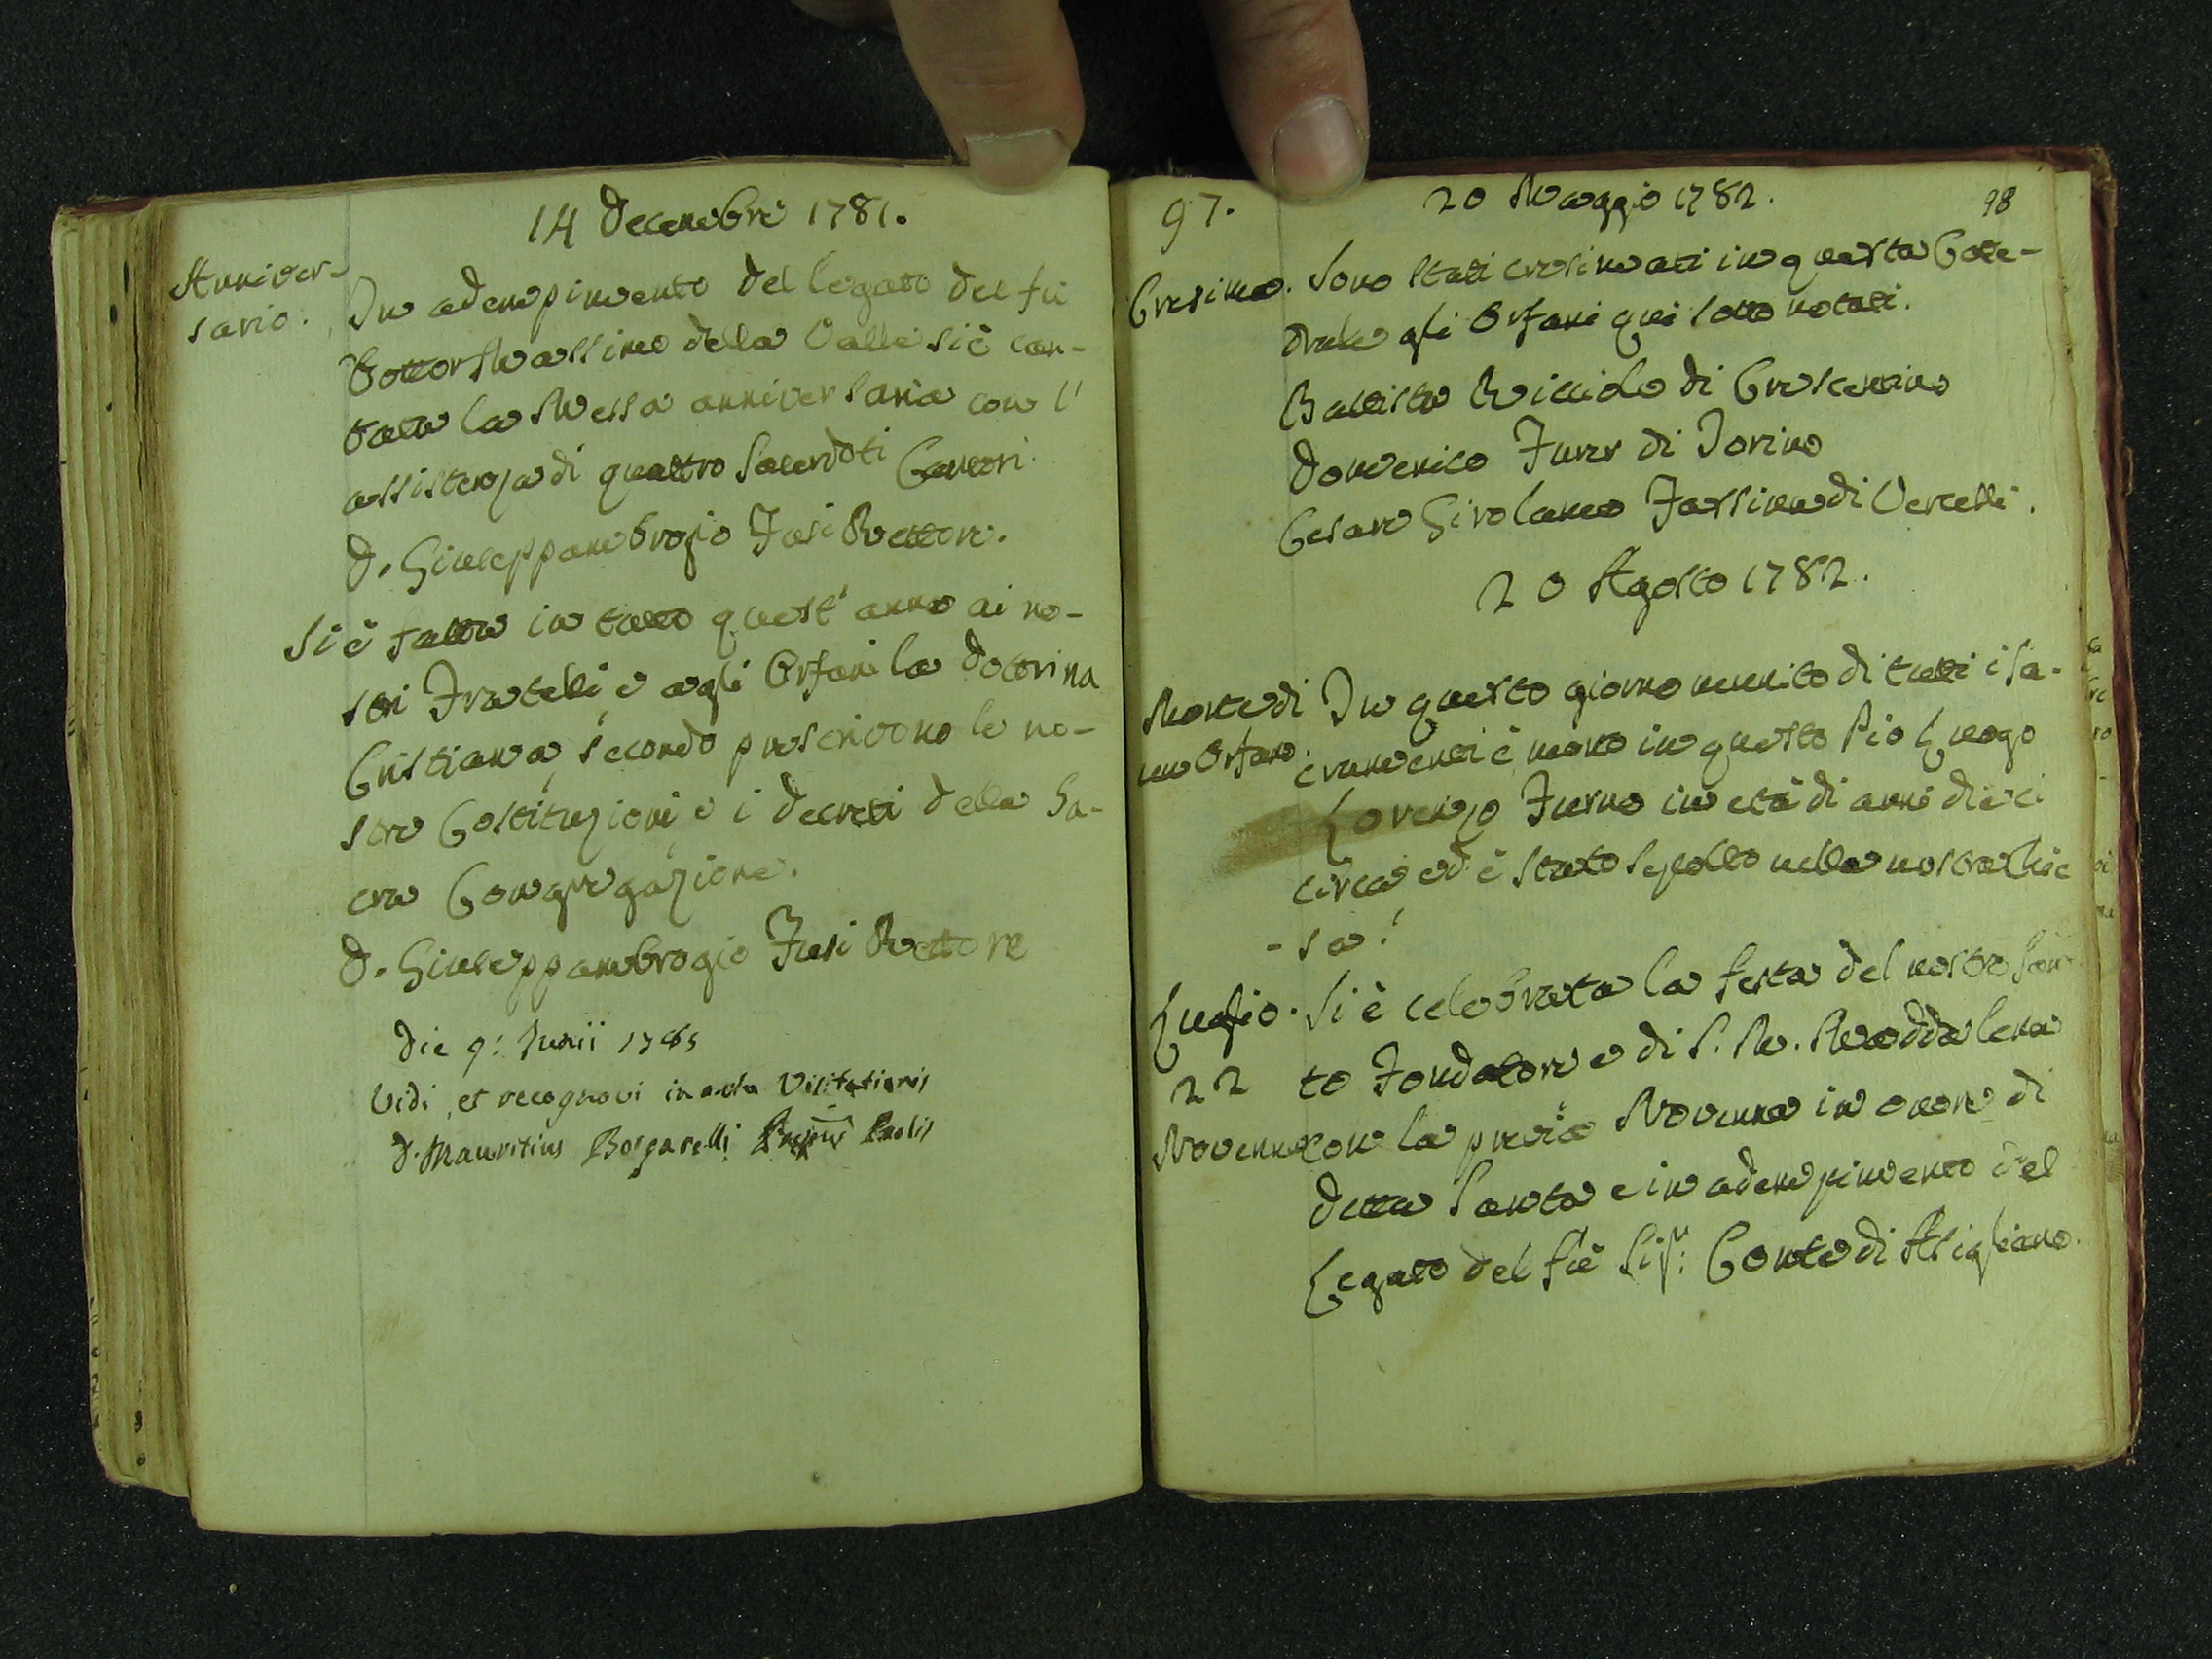 14 Decembre 1781.
Anniver-
sario.
In adempimento del legato del fù
Dottor Massimo della Valle si è can-
tata la Messa anniversaria con l'
assistenza di quattro Sacerdoti Cantori.
D. Giuseppambrogio Fusi Rettore.
Si è fatta in tutto quest'anno ai no-
stri Fratelli e agli Orfani la Dottrina
Cristiana, secondo prescrivono le no-
stre Costituzioni e i decreti della Sa-
cra Congregazione.
D. Giuseppambrogio Fusi Rettore
Die 9: Junii 1785
Vidi, et recognovi in actu Visitationis
D. Mauritius Borgarelli
97.
20 Maggio 1782.
98
Cresima. Sono stati cresimati in questa Catte-
drale gli Orfani qui sotto notati.
Battista Ricciolo di Crescentino
Domenico Furer di Torino
Cesare Girolamo Fassina di Vercelli.
20 Agosto 1782.
Morte di In questo giorno munito di tutti i Sa-
un Orfano. cramenti è morto in questo Pio Luogo
Lorenzo Furno in età di anni dieci
circa ed è stato sepolto nella nostra Chie
-sa.
Luglio. Si è celebrata la festa del nostro San-
22 to Fondatore e di S. M. Maddalena
Novenna con la previa Novenna in onore di
detta Santa e in adempimento del
Legato del fù Sigr: Conte di Asigliano.